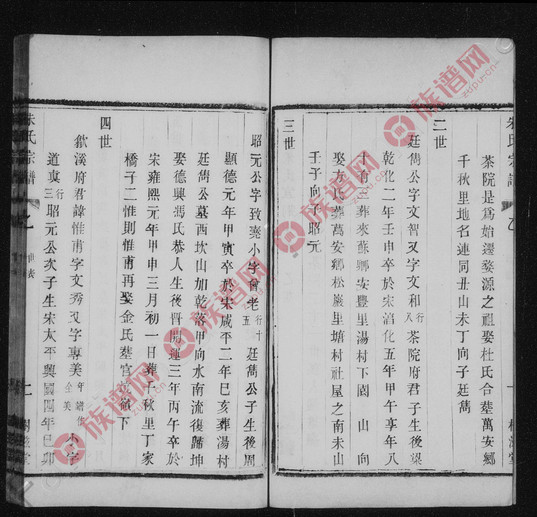 朱氏宗譜
茶院是為始遷婺源之祖娶杜氏合葬萬安鄉
千秋里地名連同丑山未丁向子廷雋
二世
廷雋公字文智又字文和行
茶院府君子生後梁
乾化二年壬申卒於宋淳化五年甲午享年八
十有三葬來蘇鄉安豐里湯村下園山向
娶方氏葬萬安鄉松巖里塘村社屋之南未山
壬子向子昭元
三世
昭元公字致堯小字會老行十五
廷雋公子生後周
顯德元年甲寅卒於宋咸平二年巳亥葬湯村
廷雋公墓西坎山加乾落甲向水南流復歸坤
娶德興馮氏恭人生後晉開運三年丙午卒於
宋雍熙元年甲申三月初一日葬千秋里丁家
橋子二惟則惟甫再娶金氏葬官嶺下
四世
歙溪府君諱惟甫字文秀又字專美
小字
道真行三
昭元公次子生宋太平興國四年巳卯
朱氏宗譜
族谱网
zupu.cn